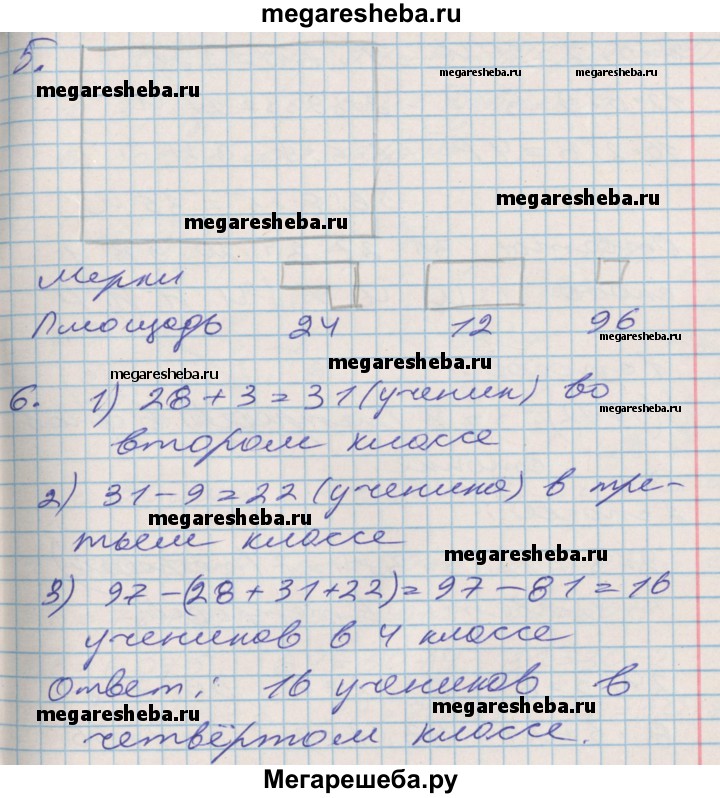 megaresheba.ru
5.
megaresheba.ru megaresheba.ru
megaresheba.ru
megaresheba.ru
megaresheba.ru
Мерки
Площадь 24 12 96
megaresheba.ru
megaresheba.ru
6. 1) 28 + 3 = 31 (ученик) во
megaresheba.ru
втором классе
2) 31 - 9 = 22 (ученика) в тре-
megaresheba.ru
тьем классе
megaresheba.ru
3) 97 - (28 + 31 + 22) = 97 - 81 = 16
учеников в 4 классе
Ответ: 16 учеников в
megaresheba.ru megaresheba.ru
четвёртом классе.
Мегарешеба.ру